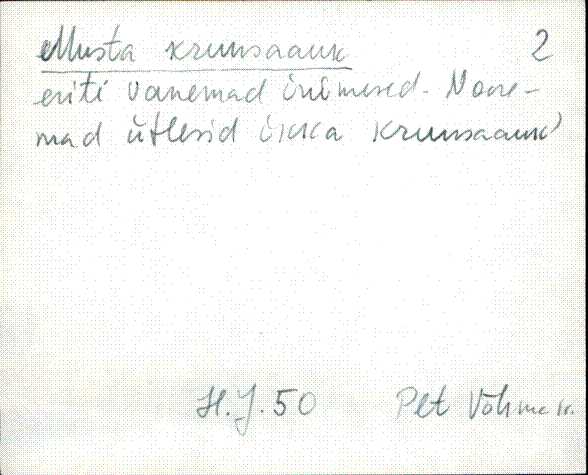 Musta kruusaauk 2
eriti vanemad inimesed. Noore-
mad ütlesid ikka kruusaauk
H.J. 50 Plt Võhma k.